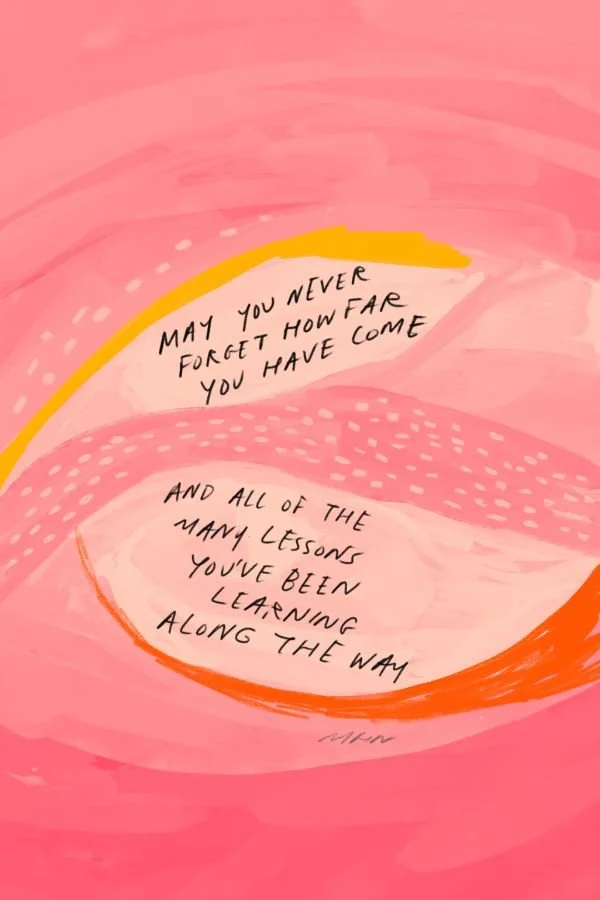 MAY YOU NEVER
FORGET HOW FAR
YOU HAVE COME
AND ALL OF THE
MANY LESSONS
YOU'VE BEEN
LEARNING
ALONG THE WAY
MHN